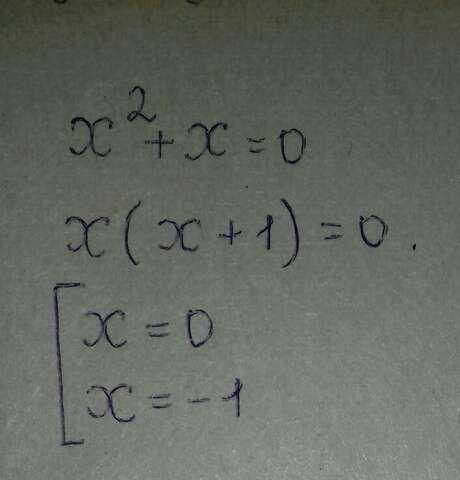 x² + x = 0
x(x + 1) = 0.
[ x = 0
x = -1